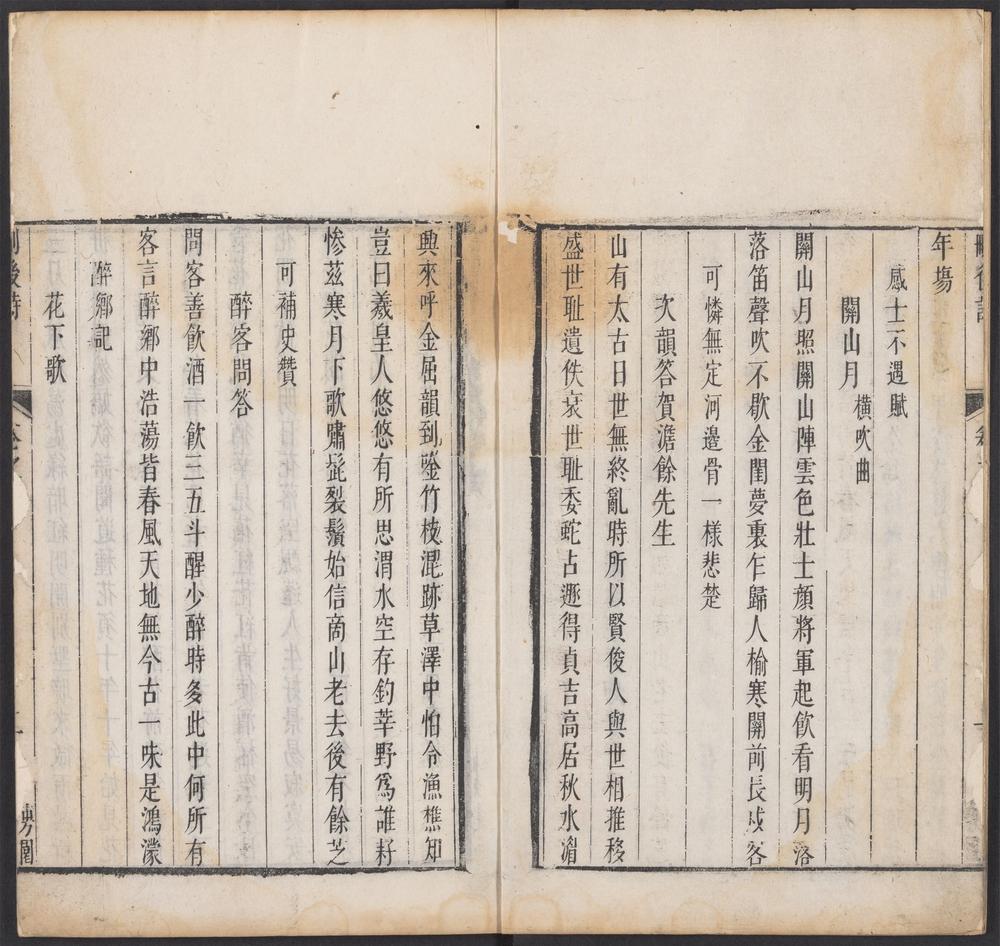 年塲
感士不遇賦
關山月 橫吹曲
關山月照關山陣雲色壯士顔將軍起飲看明月落
落笛聲吹不歇金閨夢裏乍歸人榆寒關前長戍客
可憐無定河邊骨一樣悲楚
次韻答賀澹餘先生
山有太古日世無終亂時所以賢俊人與世相推移
盛世耻遺佚衰世耻委蛇占遯得貞吉高居秋水湄
興來呼金屈韻到䥐竹枝混跡草澤中怕令漁樵知
豈曰羲皇人悠悠有所思渭水空存釣莘野爲誰耔
惨茲寒月下歌嘯髭裂鬚始信商山老去後有餘芝
可補史贊
醉客問答
問客善飲酒一飲三五斗醒少醉時多此中何所有
客言醉鄉中浩蕩皆春風天地無今古一味是鴻濛
醉鄉記
花下歌
後詩